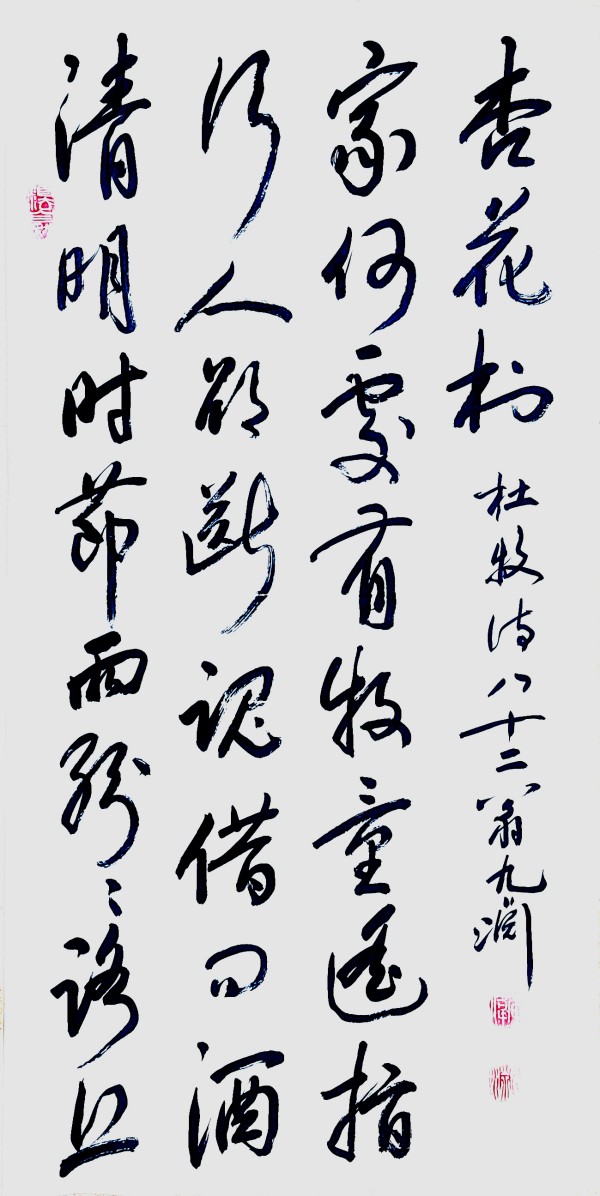 清明时節雨纷〻路上
行人欲断魂借问酒
家何處有牧童遥指
杏花村
杜牧诗八十二翁九渊